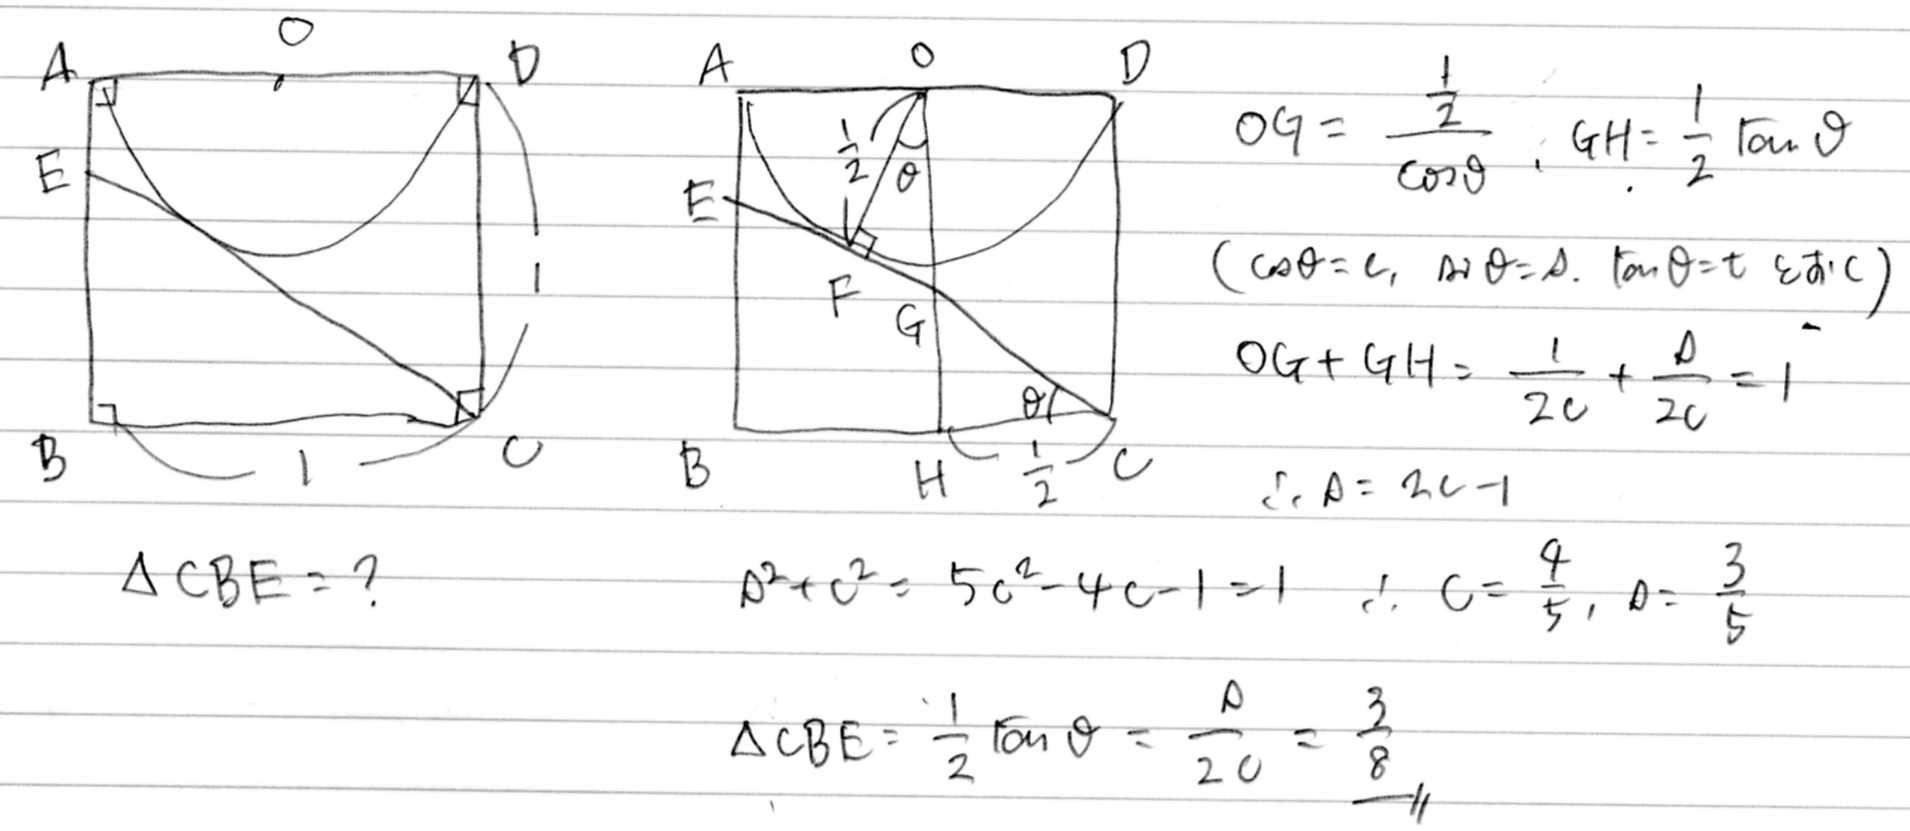 O
A D
E
1
B 1 C
△CBE = ?
A O D
1/2 θ
E
F
G
θ
B H 1/2 C
OG = (1/2)/cosθ, GH = 1/2 tanθ
(cosθ = c, sinθ = s. tanθ = t とおく)
OG + GH = 1/2c + s/2c = 1
∴ s = 2c - 1
s² + c² = 5c² - 4c - 1 = 1 ∴ c = 4/5, s = 3/5
△CBE = 1/2 tanθ = s/2c = 3/8